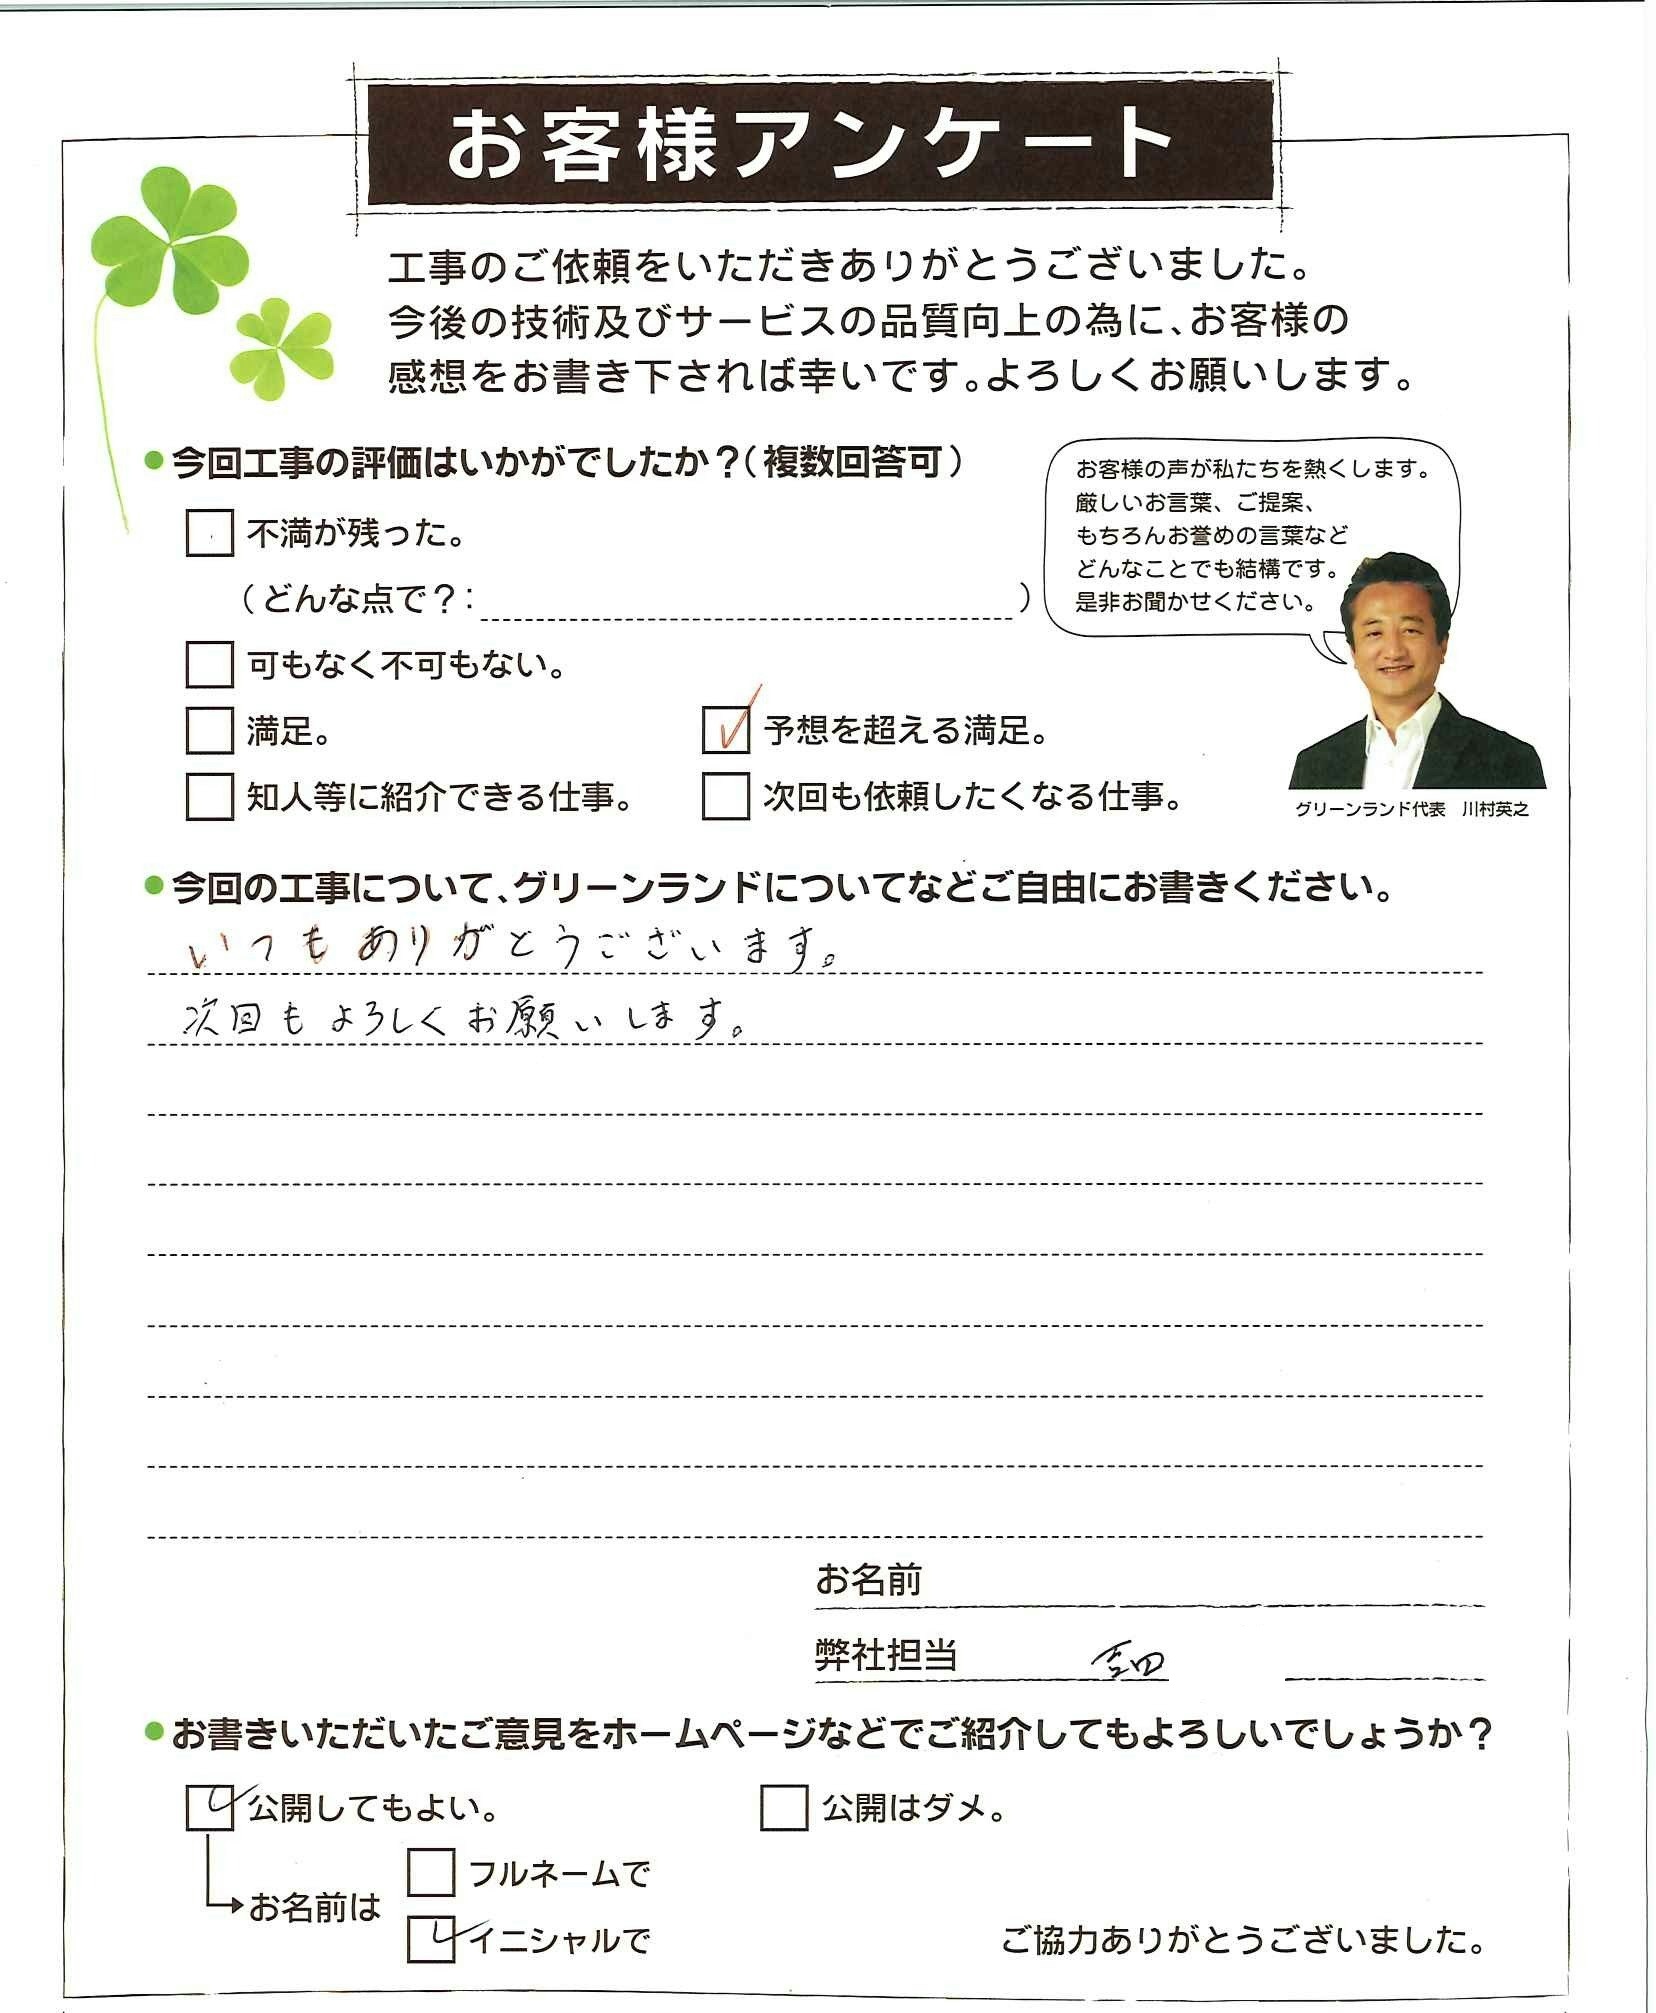 お客様アンケート
工事のご依頼をいただきありがとうございました。
今後の技術及びサービスの品質向上の為に、お客様の
感想をお書き下されば幸いです。よろしくお願いします。
●今回工事の評価はいかがでしたか？（複数回答可）
お客様の声が私たちを熱くします。
厳しいお言葉、ご提案、
もちろんお誉めの言葉など
どんなことでも結構です。
是非お聞かせください。
不満が残った。
（どんな点で？：　）
可もなく不可もない。
満足。
予想を超える満足。
知人等に紹介できる仕事。
次回も依頼したくなる仕事。
グリーンランド代表　川村英之
●今回の工事について、グリーンランドについてなどご自由にお書きください。
いつもありがとうございます。
次回もよろしくお願いします。
お名前
弊社担当 吉田
●お書きいただいたご意見をホームページなどでご紹介してもよろしいでしょうか？
公開してもよい。
公開はダメ。
フルネームで
お名前は
イニシャルで
ご協力ありがとうございました。